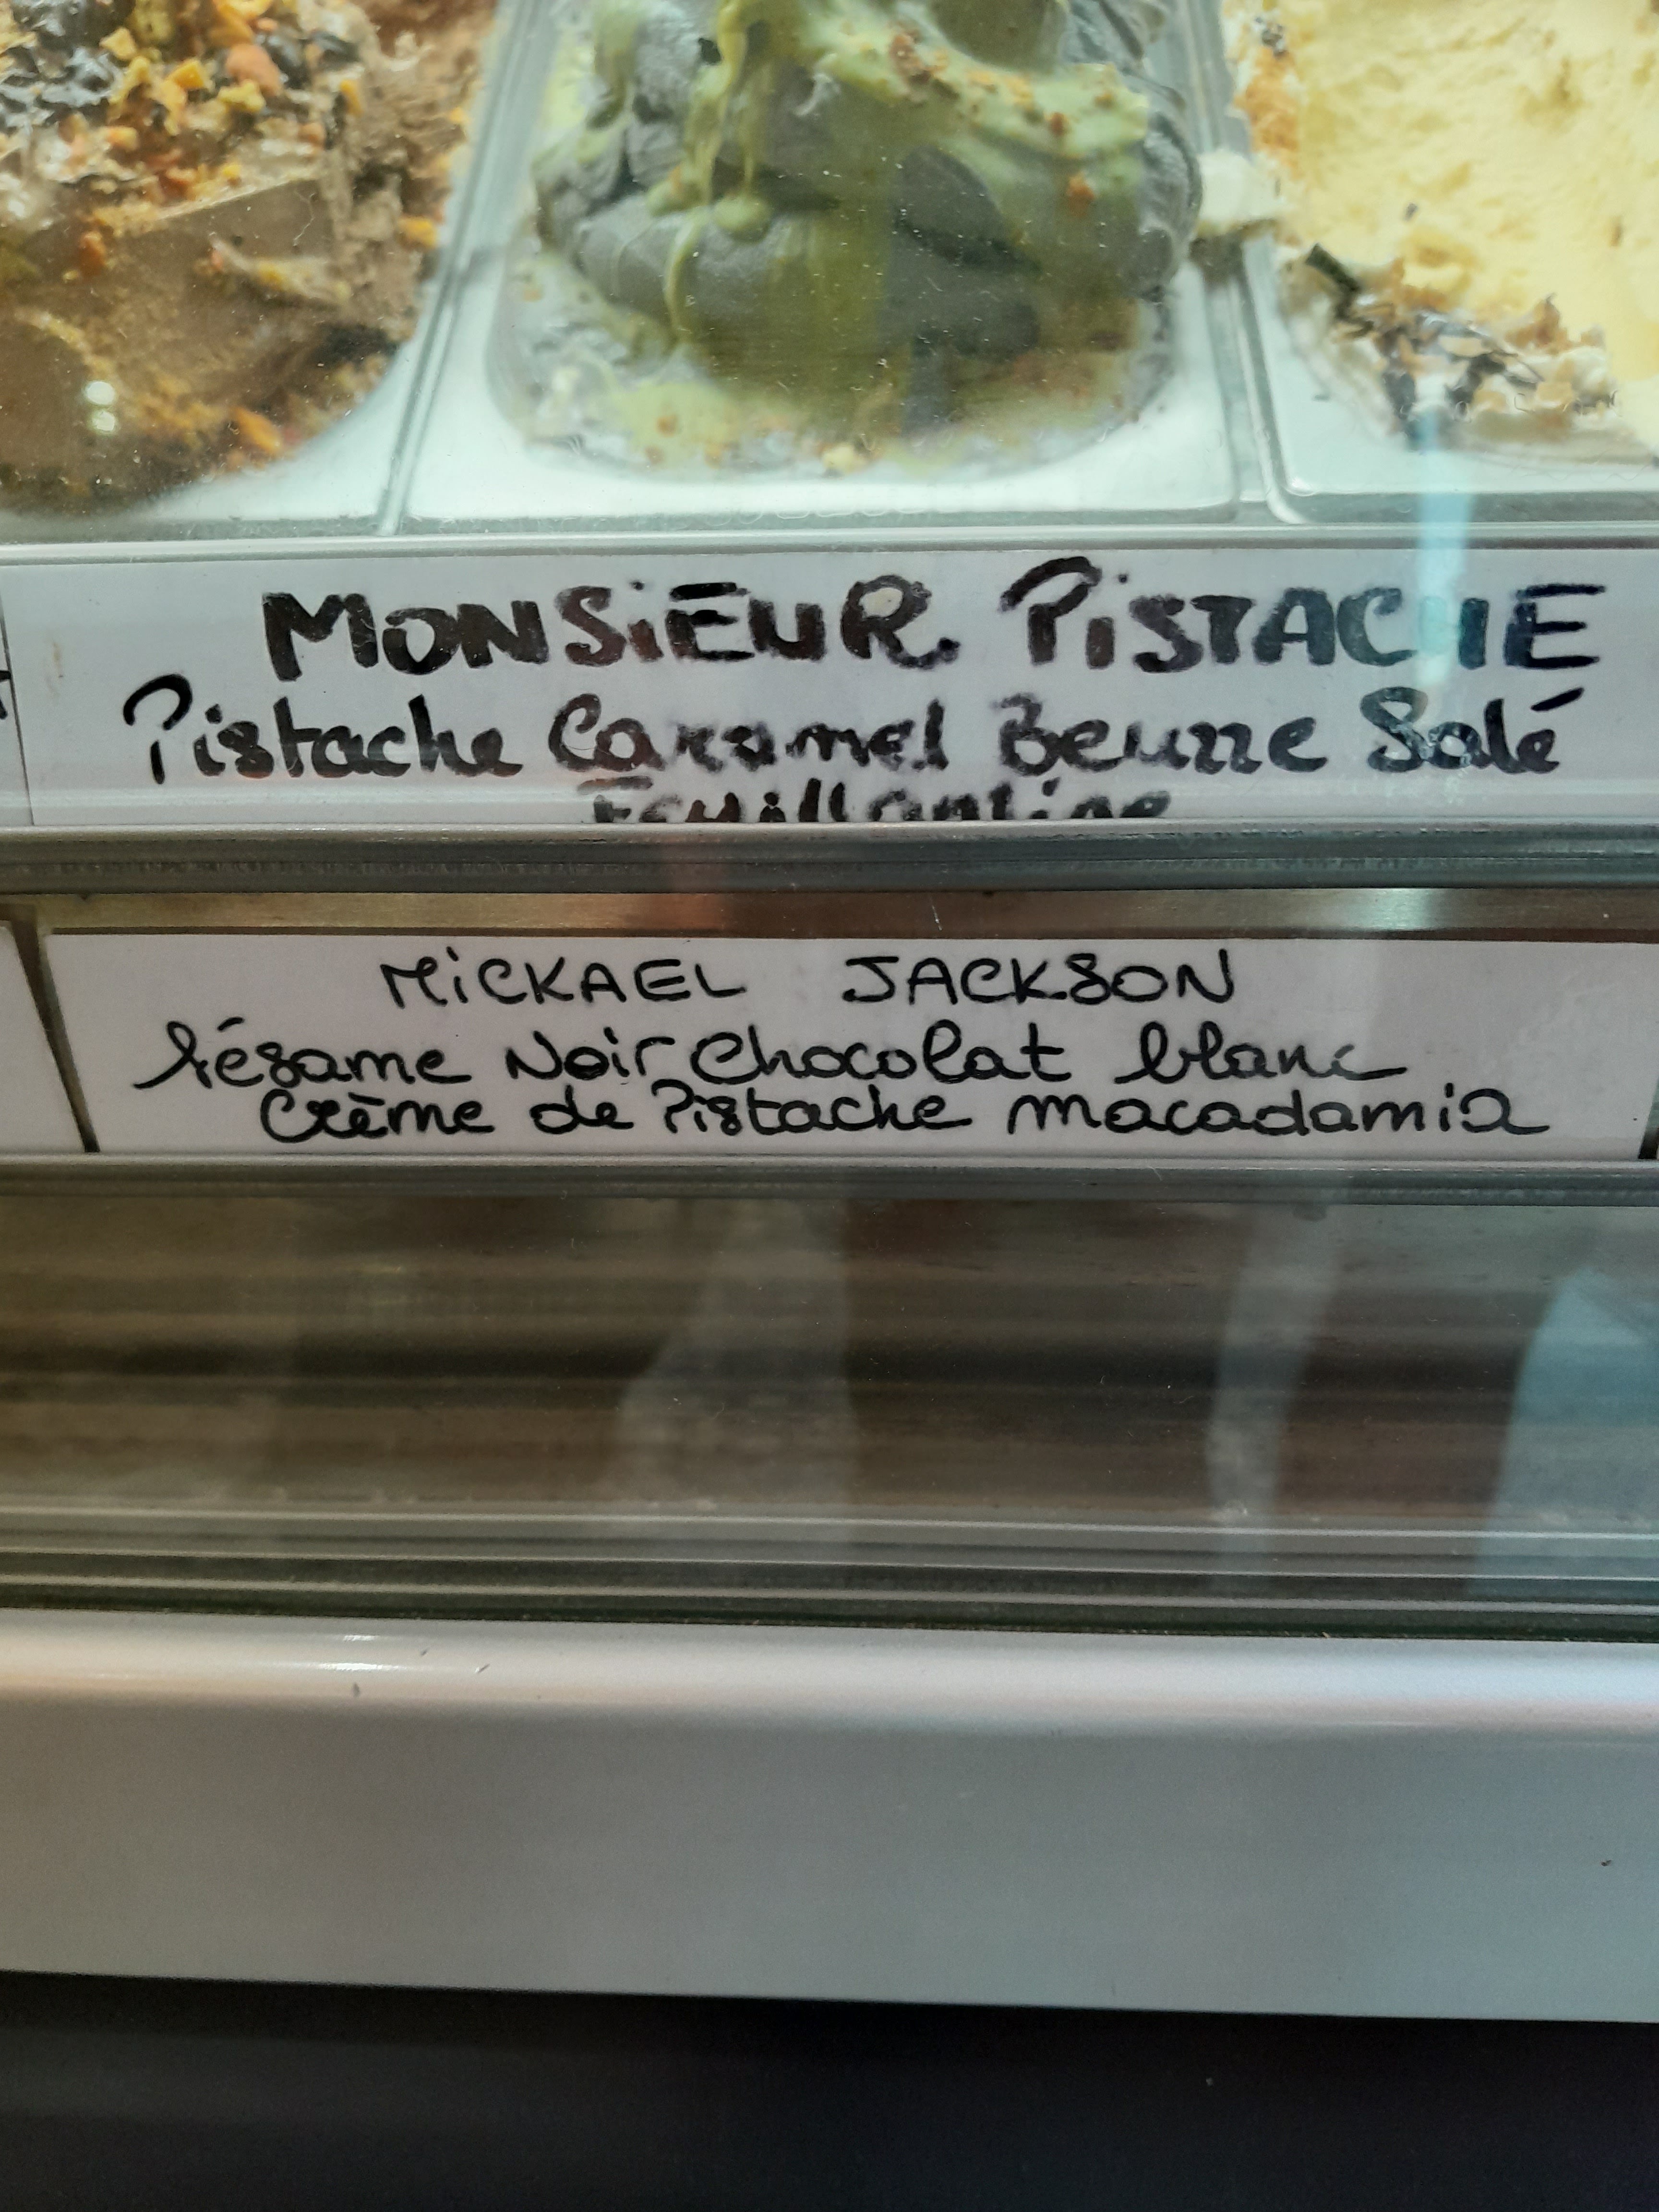 MONSiEUR PiSTACHE
Pistache Caramel Beurre Salé
MiCKAEL JACKSON
Sésame Noir Chocolat blanc
Crème de Pistache macadamia